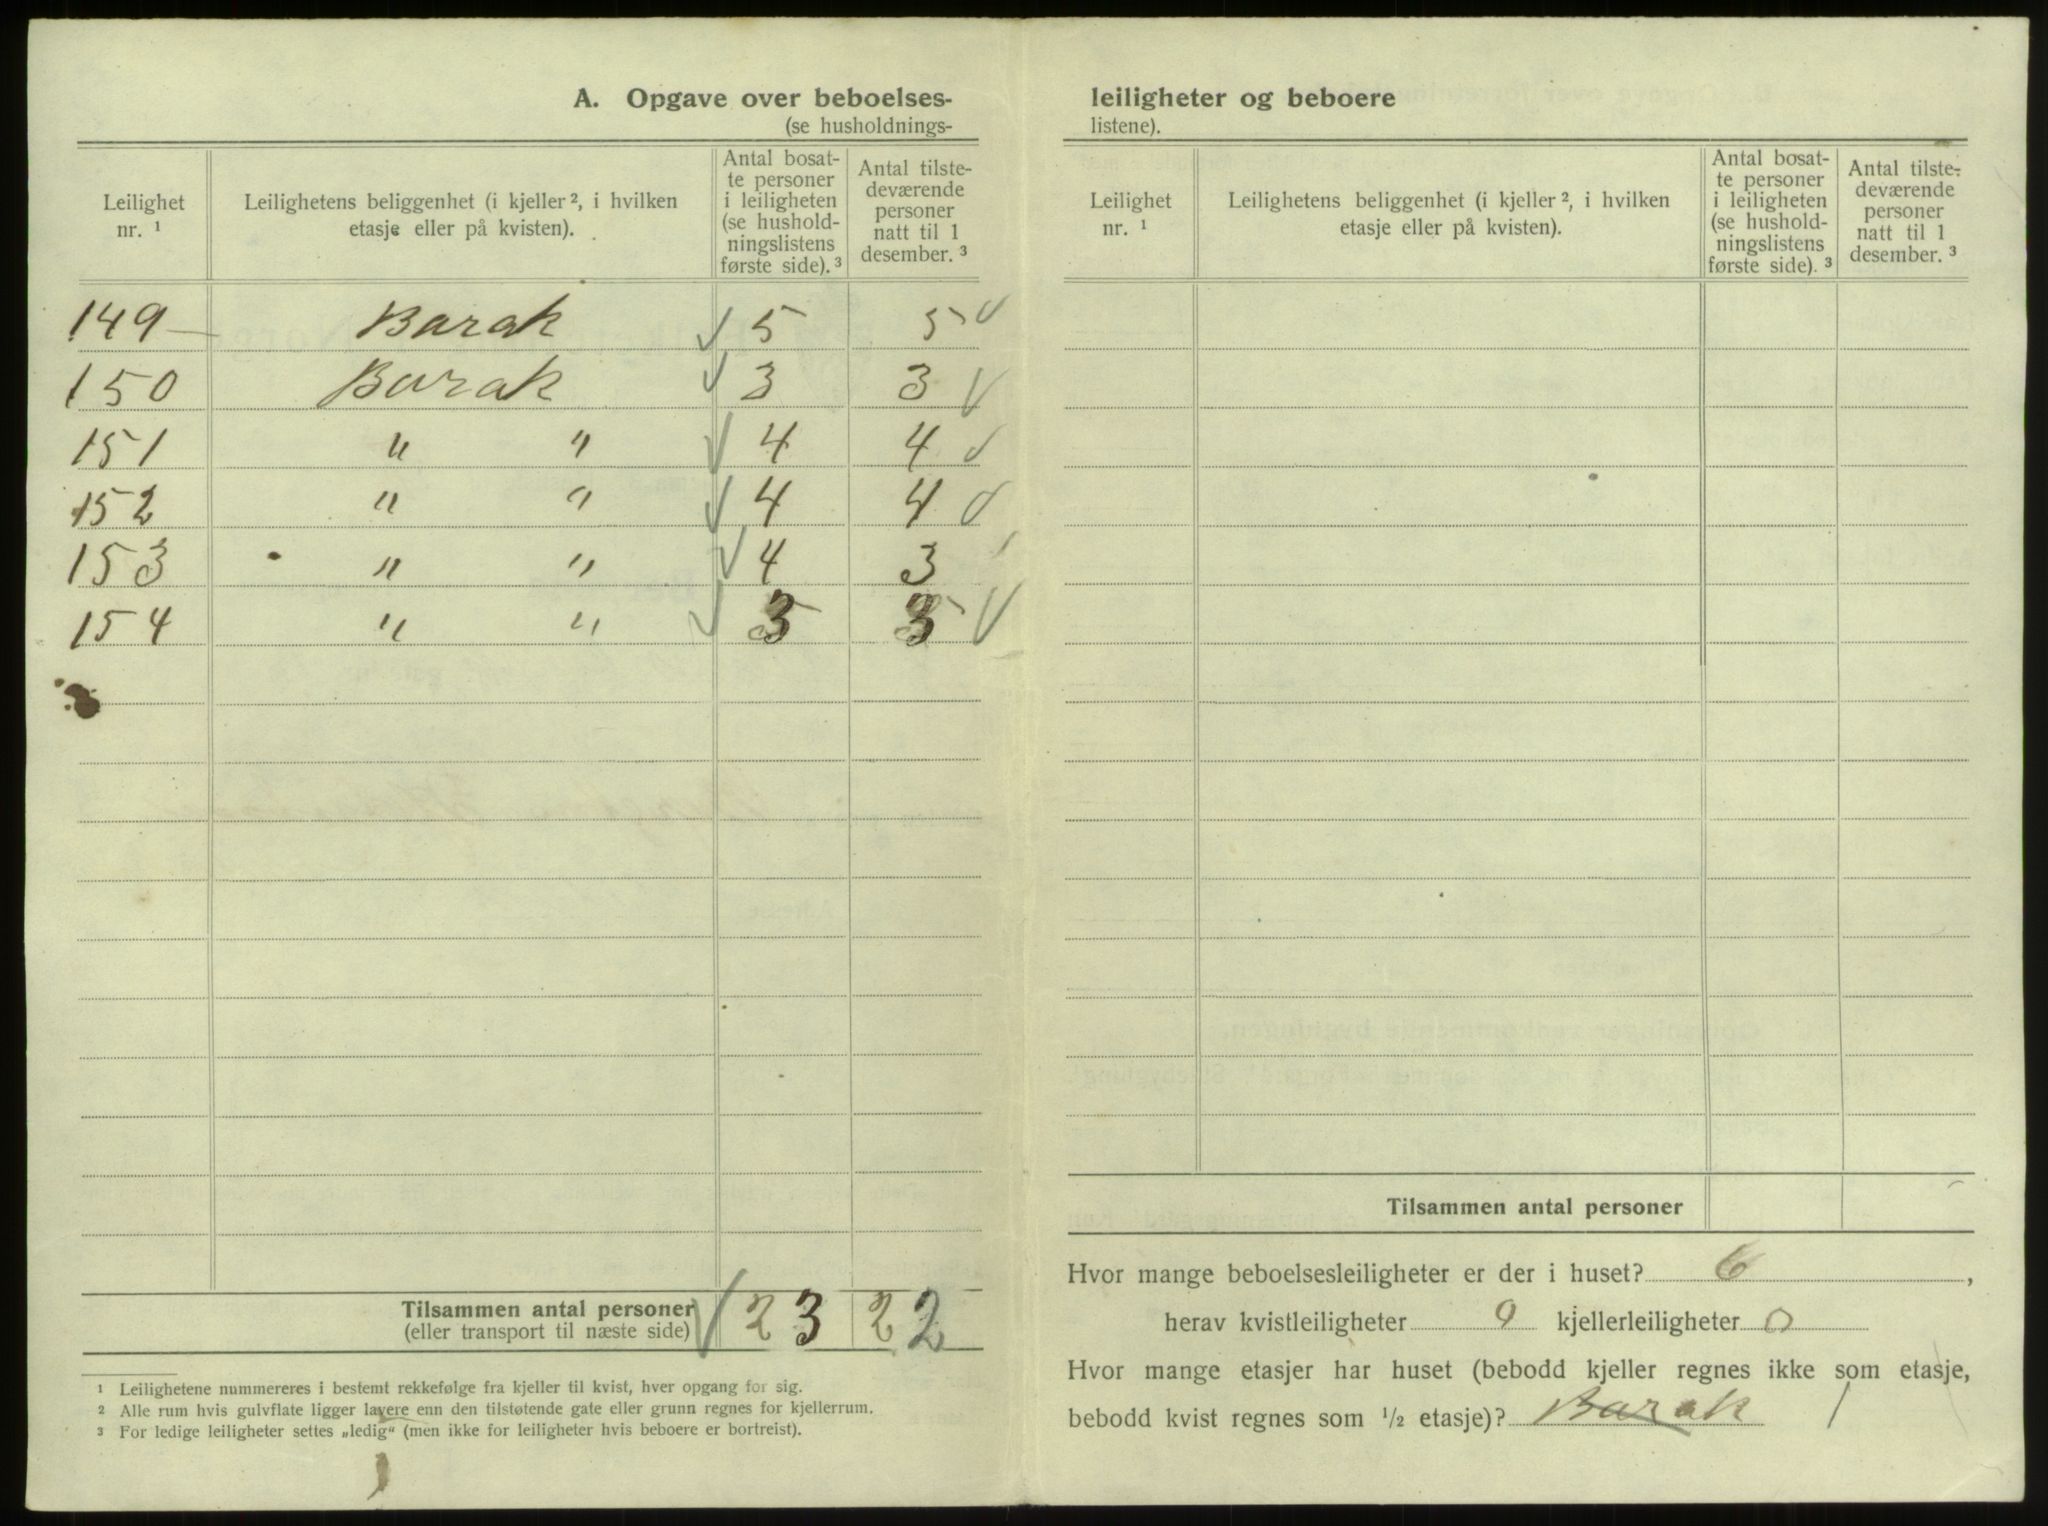 A. Opgave over beboelses-
(se husholdnings-
Leilighet nr. ¹
Leilighetens beliggenhet (i kjeller ², i hvilken etasje eller på kvisten).
Antal bosat-
te personer
i leiligheten
(se hushold-
ningslistens
første side). ³
Antal tilste-
deværende
personer
natt til 1
desember. ³
149 Barak 5 5
150 Barak 3 3
151 " " 4 4
152 " " 4 4
153 " " 4 3
154 " " 3 3
Tilsammen antal personer 23 22
(eller transport til næste side)
¹ Leilighetene nummereres i bestemt rekkefølge fra kjeller til kvist, hver opgang for sig.
² Alle rum hvis gulvflate ligger lavere enn den tilstøtende gate eller grunn regnes for kjellerrum.
³ For ledige leiligheter settes „ledig“ (men ikke for leiligheter hvis beboere er bortreist).
leiligheter og beboere
listene).
Leilighet nr. ¹
Leilighetens beliggenhet (i kjeller ², i hvilken etasje eller på kvisten).
Antal bosat-
te personer
i leiligheten
(se hushold-
ningslistens
første side). ³
Antal tilste-
deværende
personer
natt til 1
desember. ³
Tilsammen antal personer
Hvor mange beboelsesleiligheter er der i huset? 6,
herav kvistleiligheter 0 kjellerleiligheter 0
Hvor mange etasjer har huset (bebodd kjeller regnes ikke som etasje,
bebodd kvist regnes som ½ etasje)? Barak 1